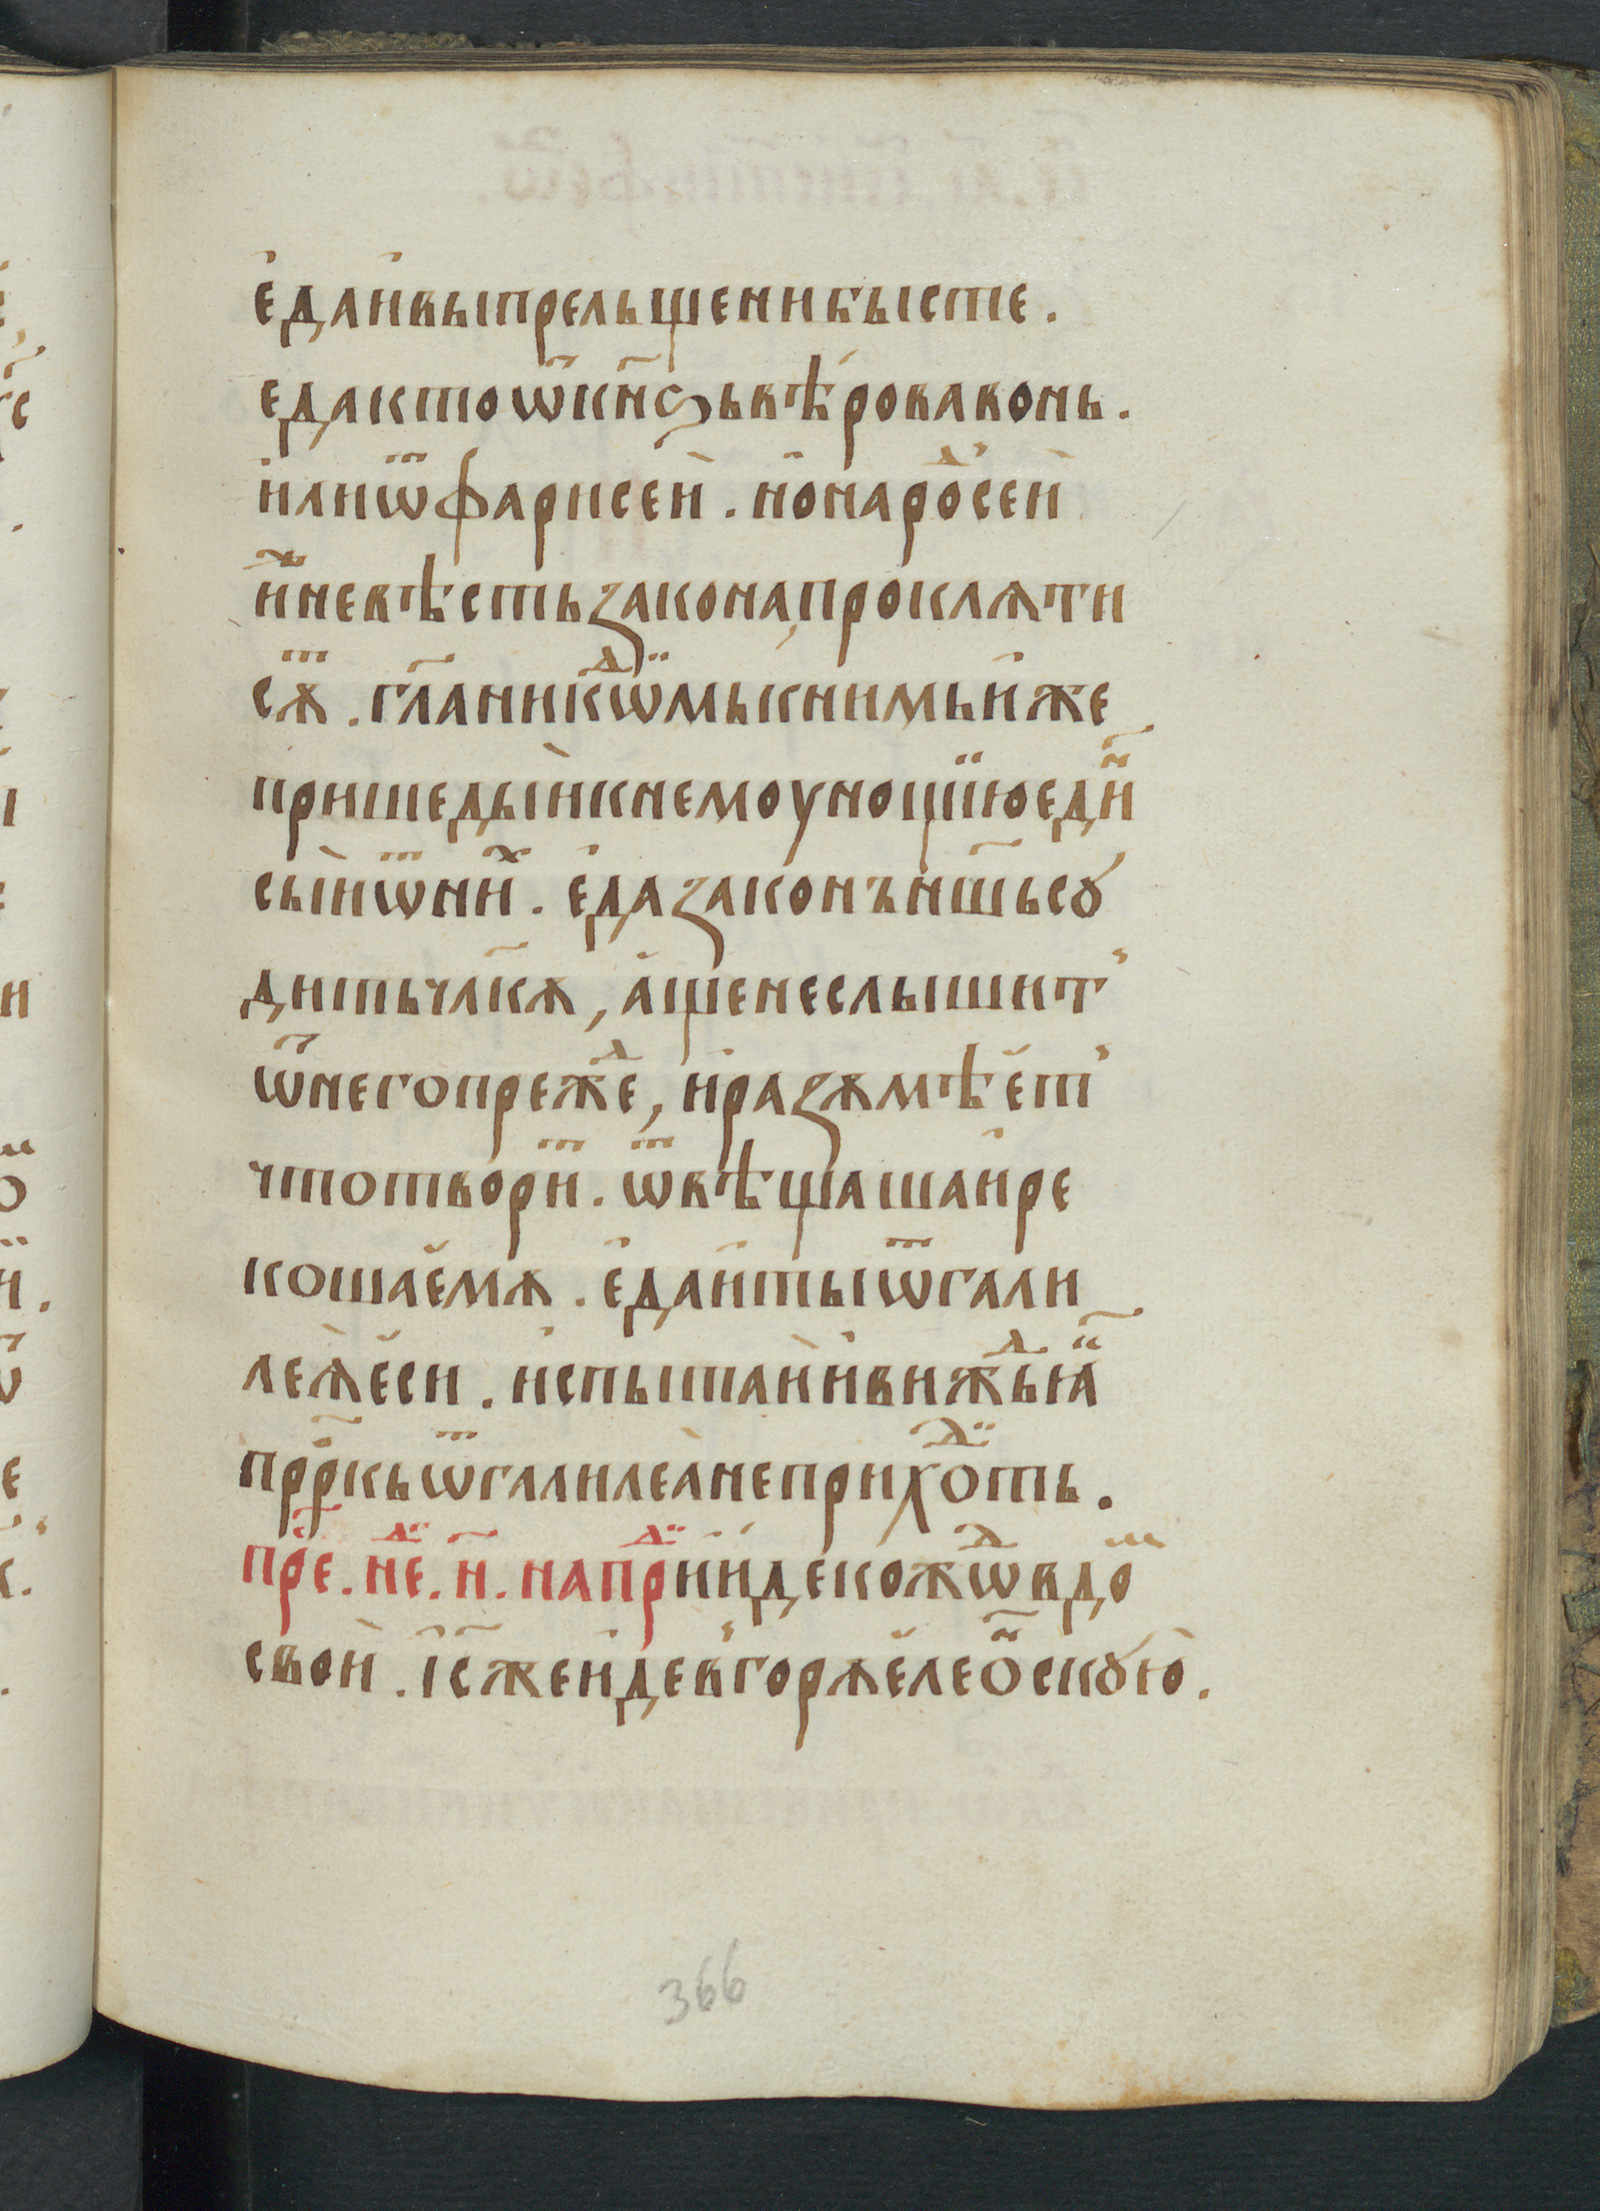 е҆даи҆выпрельщенибысте.
едактоѿкн҃ѕьвѣ́роваконь.
и҆лиѿфарисеи̇. но҆наро́дⷭ҇сеи̇
и҆̃невѣстьзакона,проклѧти
сѫ҃ⷮ. гл҃аникѡ̈ⷣмькнимьи҆же
пришедыи̇кнемоунощїюеди҃ⷩ
сыи̇ѿниⷯ. е҆даꙁаконънш҃ьсꙋ
дитьчл҃кѧ, а҆щенеслышит̾
ѿнегопрежⷣе, и҆раꙁѫмѣе҆т̾
чтотвориⷮ. ѿвѣщашаи҆ре
кошае҆мѫ. е҆даи҆тыѿгали
леѧе҆си. и҆спытаи̇и҆вижⷣьꙗ҃
прⷪ҇ркьѿгалилеанеприхо́ⷣть.
прⷣе. нⷣе. н҃. напрⷣїи҆и҆декожⷣѡвдоⷨ
свои̇. і҆с҃жеи҆дев̾горѫе҆лео҃ⷩскꙋю.
366